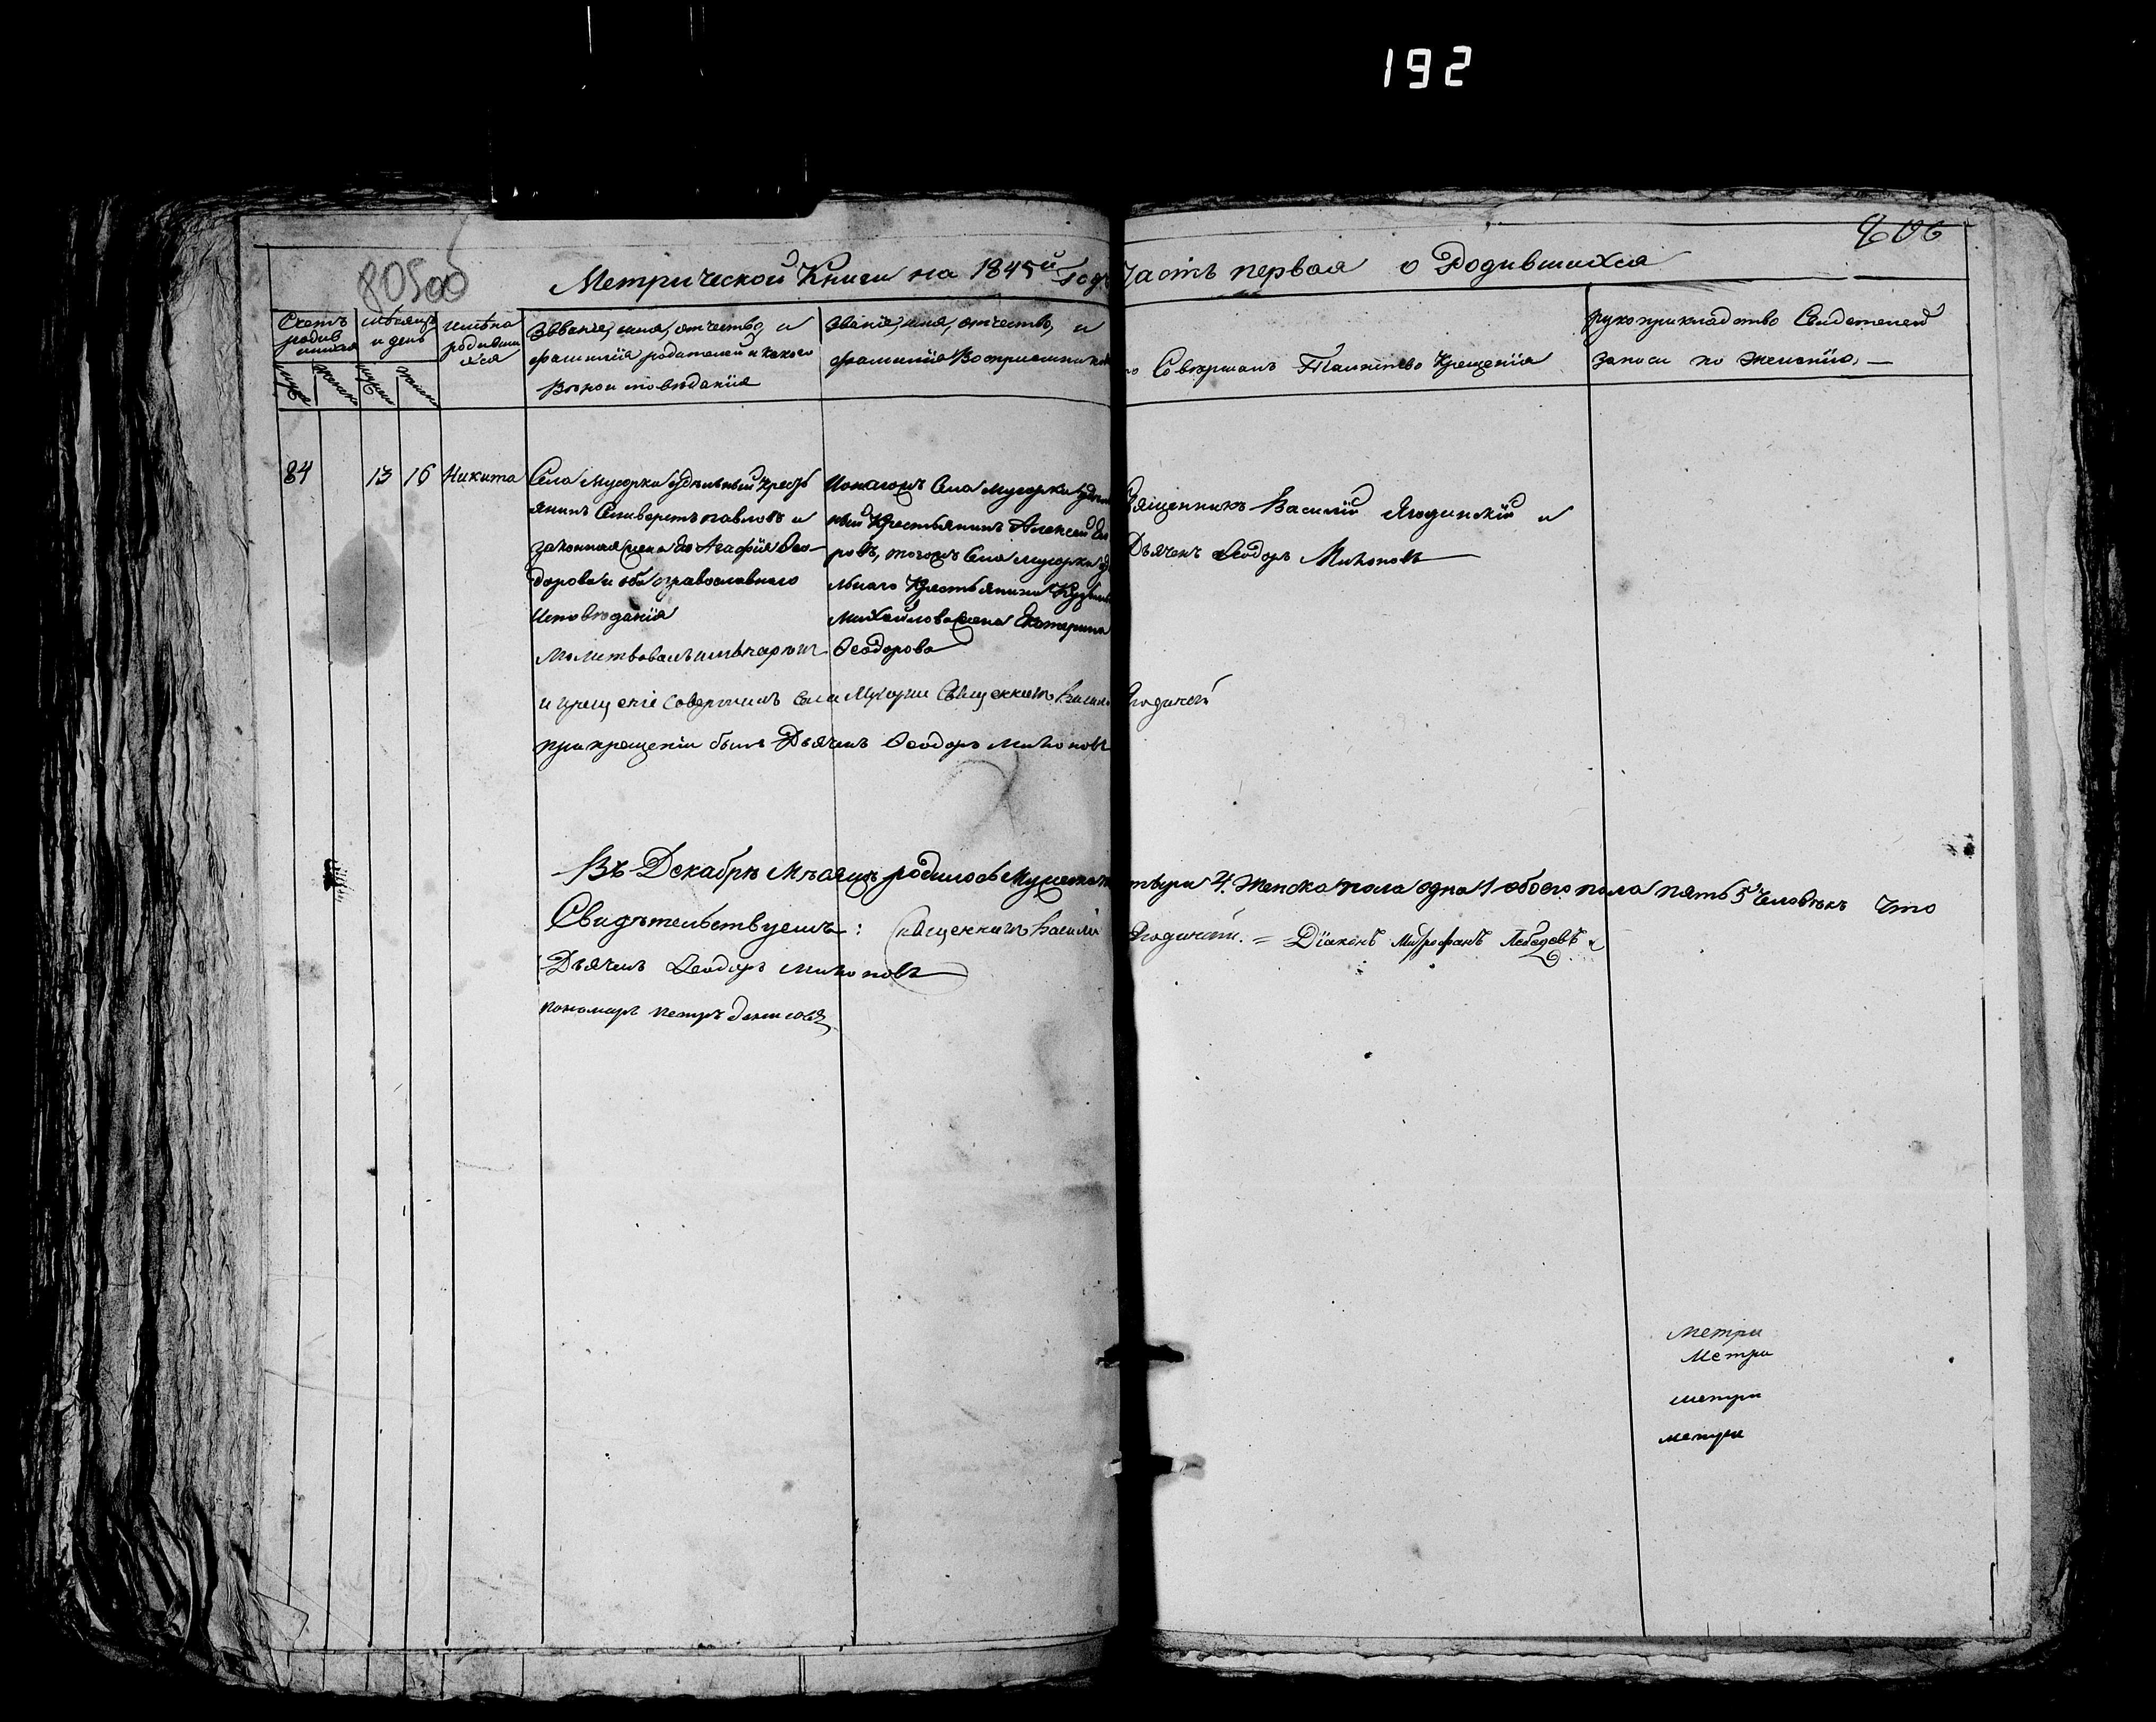 192
80500
Метрической Книги на 1845й Годъ Часть первая о Родившихся
Счетъ родив шихся
мѣсяцъ и день
имѣна родивши хся
Званіе, имя, отчество, и
фамилія родителей и какого
Вѣроисповѣданія
Званіе, имя, отчество, и
фамилія Воспріемниковъ
Совершалъ Таинство Крещенія
рукоприкладство Свидетелей
записи по желанію, —
84 13 16 Никита
Села Мусорки удѣльный Крестъ
янинъ Селиверстъ павловъ и
законная жена его Агафія Ѳео-
дорова и оба православнаго
Исповѣданія
Молитвовалъ имянарекъ
Села Мусорки
ный Крестьянинъ Алексей
ровъ, тогожъ Села Мусорки
льнаго Крестьянина
Михайлова жена Екатерина
Ѳеодорова
Священникъ Василій Ягодинскій и
Дьячекъ Ѳеодоръ Михоновъ
и крещеніе Совершилъ села Мусорки Священникъ Василій Ягодинскій
при крещеніи былъ Дьячекъ Ѳеодоръ Михоновъ
Въ Декабрѣ Мѣсяцѣ родилось Мужеска четыри 4. Женска пола одна 1 обоего пола пять 5 Человѣкъ Что
Свидѣтельствуемъ: Священникъ Василій Ягодинскій. = Діаконъ Митрофанъ Лебедевъ и
Дьячекъ Ѳеодоръ Михоновъ
пономарь петръ денисовъ
Метри
Метри
метри
метри